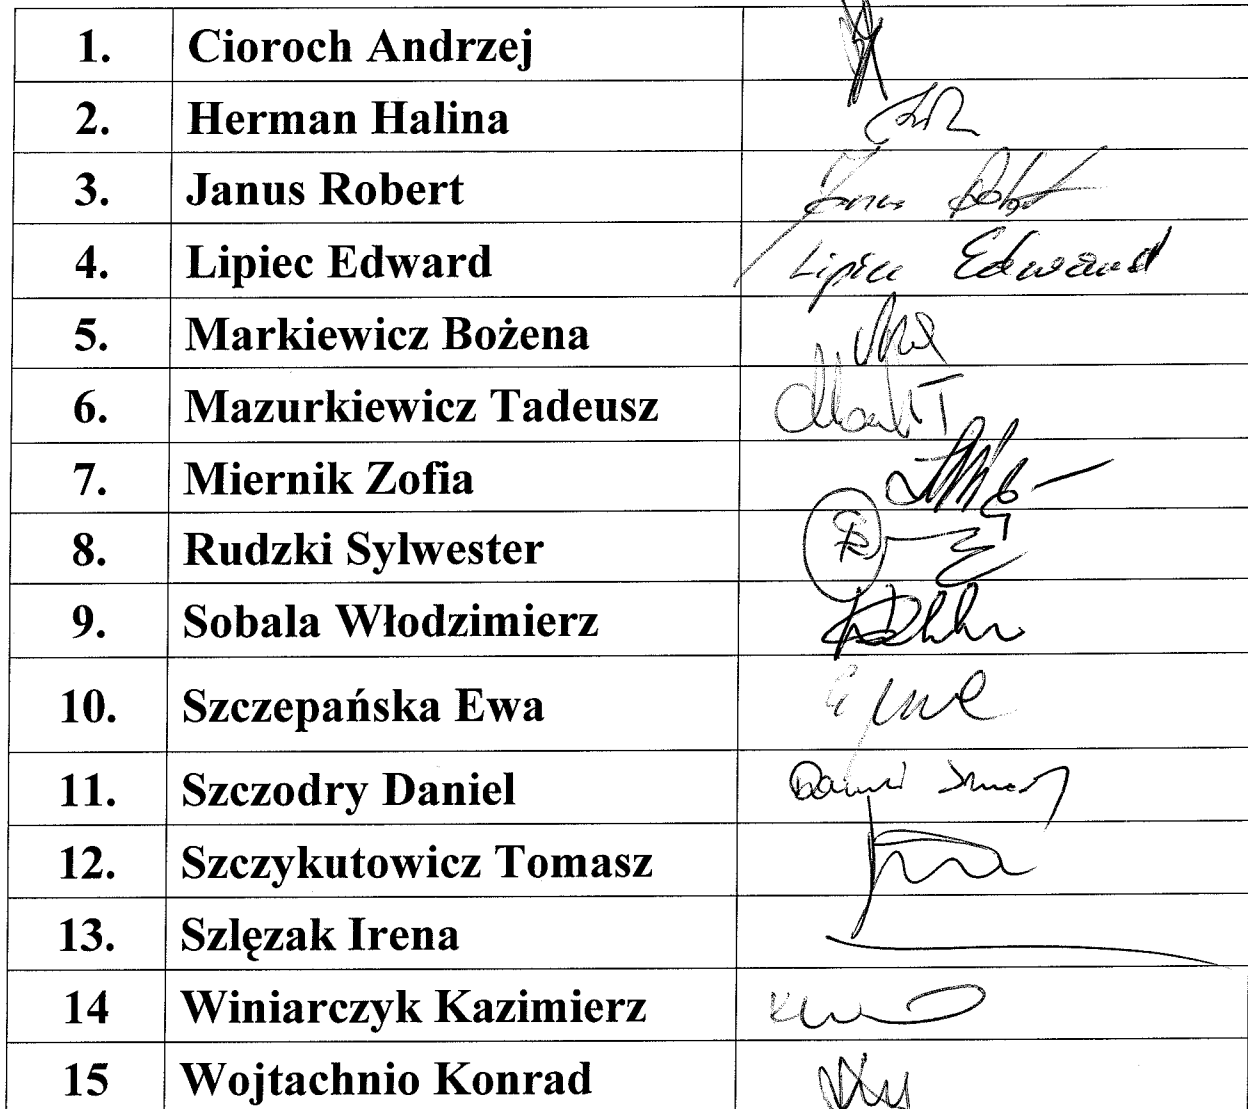 1. Cioroch Andrzej
2. Herman Halina
3. Janus Robert Janus Robert
4. Lipiec Edward Lipiec Edward
5. Markiewicz Bożena
6. Mazurkiewicz Tadeusz
7. Miernik Zofia
8. Rudzki Sylwester
9. Sobala Włodzimierz
10. Szczepańska Ewa
11. Szczodry Daniel Daniel
12. Szczykutowicz Tomasz
13. Szlęzak Irena
14 Winiarczyk Kazimierz
15 Wojtachnio Konrad